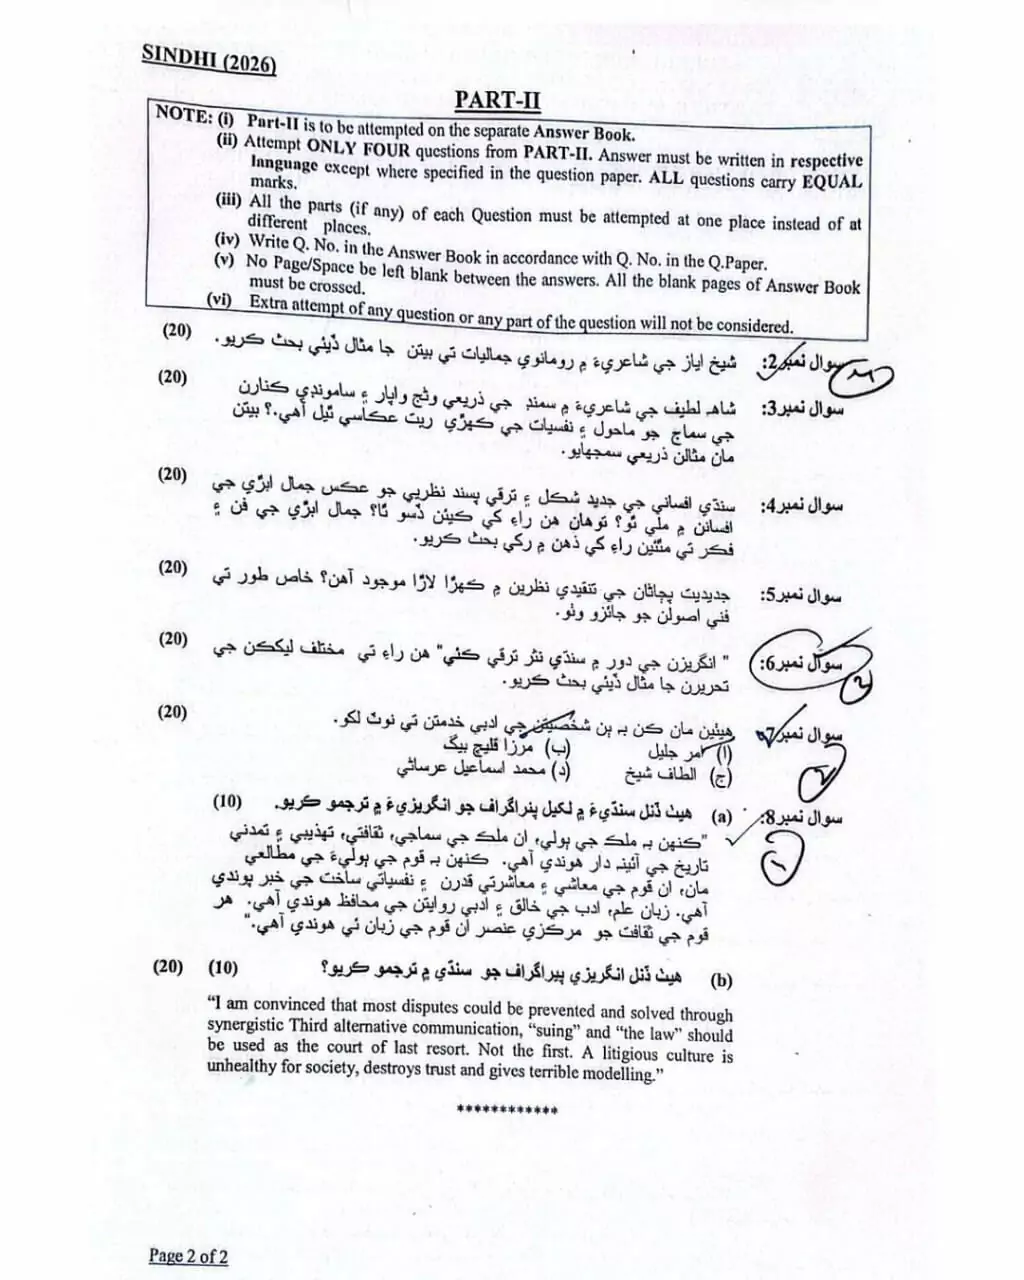 SINDHI (2026)
PART-II
NOTE: (i) Part-II is to be attempted on the separate Answer Book.
(ii) Attempt ONLY FOUR questions from PART-II. Answer must be written in respective
language except where specified in the question paper. ALL questions carry EQUAL
marks.
(iii) All the parts (if any) of each Question must be attempted at one place instead of at
different places.
(iv) Write Q. No. in the Answer Book in accordance with Q. No. in the Q.Paper.
(v) No Page/Space be left blank between the answers. All the blank pages of Answer Book
must be crossed.
(vi) Extra attempt of any question or any part of the question will not be considered.
سوال نمبر2: شيخ اياز جي شاعريءَ ۾ رومانوي جماليات تي بيتن جا مثال ڏيئي بحث ڪريو. (20)
سوال نمبر3: شاهه لطيف جي شاعريءَ ۾ سمنڊ جي ذريعي وڻج واپار ۽ سامونڊي ڪنارن (20)
جي سماج جو ماحول ۽ نفسيات جي ڪهڙي ريت عڪاسي ٿيل آهي.؟ بيتن
مان مثالن ذريعي سمجهايو.
سوال نمبر4: سنڌي افساني جي جديد شڪل ۽ ترقي پسند نظريي جو عڪس جمال ابڙي جي (20)
افسانن ۾ ملي ٿو؟ توهان هن راءِ کي ڪيئن ڏسو ٿا؟ جمال ابڙي جي فن ۽
فڪر تي مٿئين راءِ کي ذهن ۾ رکي بحث ڪريو.
سوال نمبر5: جديديت پڄاڻان جي تنقيدي نظرين ۾ ڪهڙا لاڙا موجود آهن؟ خاص طور تي (20)
فني اصولن جو جائزو وٺو.
سوال نمبر6: " انگريزن جي دور ۾ سنڌي نثر ترقي ڪئي" هن راءِ تي مختلف ليکڪن جي (20)
تحريرن جا مثال ڏيئي بحث ڪريو.
سوال نمبر7: هيٺين مان ڪن به ٻن شخصيتن جي ادبي خدمتن تي نوٽ لکو. (20)
(ا) امر جليل (ب) مرزا قليچ بيگ
(ج) الطاف شيخ (د) محمد اسماعيل عرساڻي
سوال نمبر8: (a) هيٺ ڏنل سنڌيءَ ۾ لکيل پئراگراف جو انگريزيءَ ۾ ترجمو ڪريو. (10)
"ڪنهن به ملڪ جي ٻولي، ان ملڪ جي سماجي، ثقافتي، تهذيبي ۽ تمدني
تاريخ جي آئينه دار هوندي آهي. ڪنهن به قوم جي ٻوليءَ جي مطالعي
مان، ان قوم جي معاشي ۽ معاشرتي قدرن ۽ نفسياتي ساخت جي خبر پوندي
آهي. زبان علم، ادب جي خالق ۽ ادبي روايتن جي محافظ هوندي آهي. هر
قوم جي ثقافت جو مرڪزي عنصر ان قوم جي زبان ئي هوندي آهي."
(b) هيٺ ڏنل انگريزي پيراگراف جو سنڌي ۾ ترجمو ڪريو؟ (10) (20)
“I am convinced that most disputes could be prevented and solved through
synergistic Third alternative communication, “suing” and “the law” should
be used as the court of last resort. Not the first. A litigious culture is
unhealthy for society, destroys trust and gives terrible modelling.”
************
Page 2 of 2